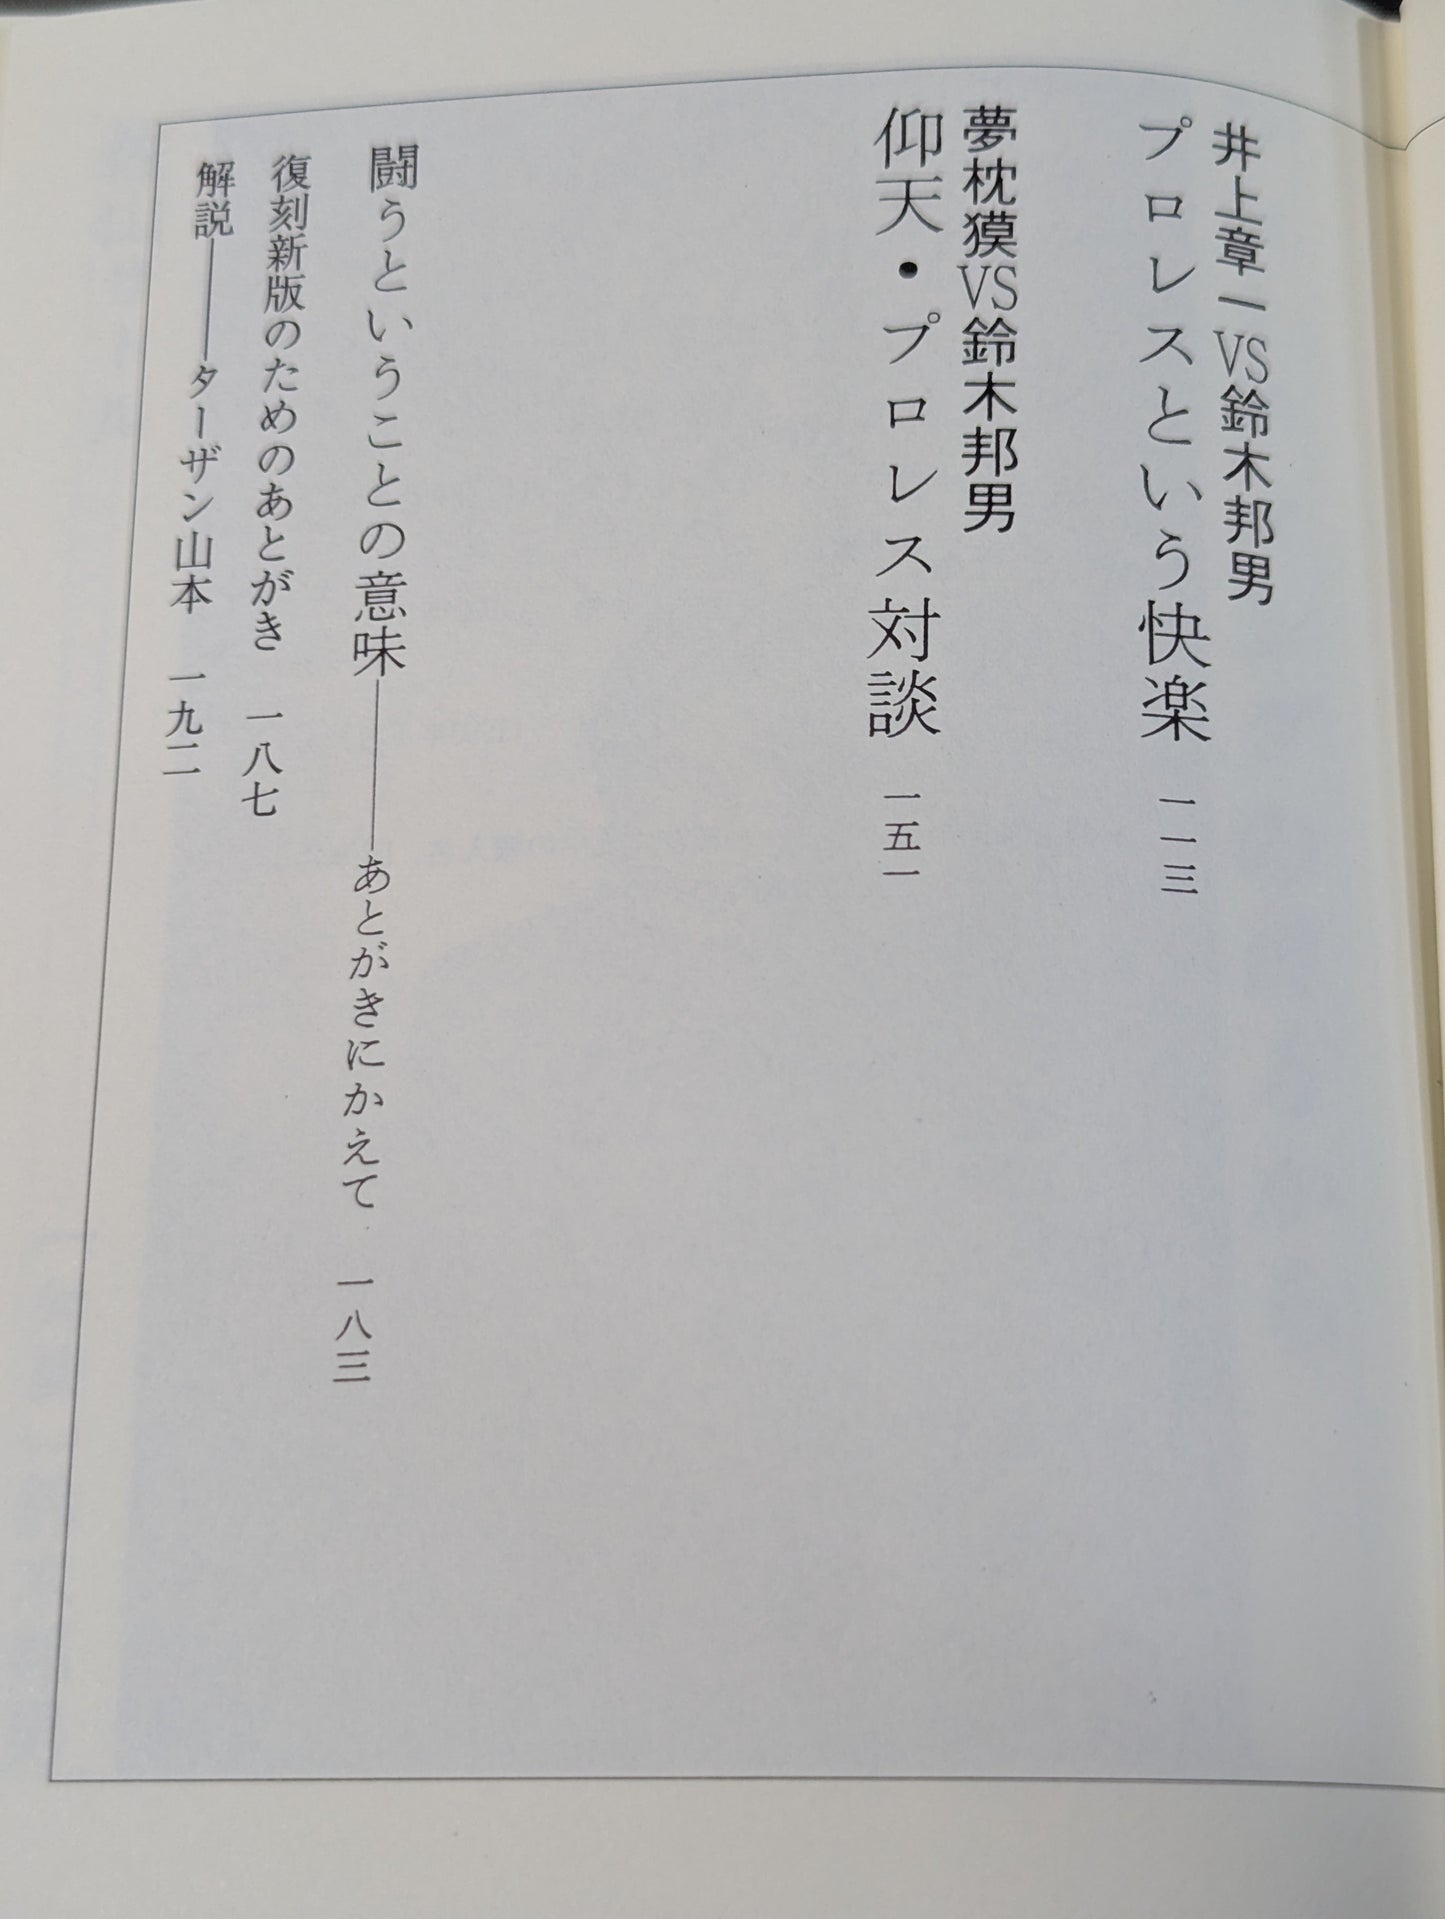 井上章一VS鈴木邦男
プロレスという快楽 一一三
夢枕獏VS鈴木邦男
仰天・プロレス対談 一五一
闘うということの意味――あとがきにかえて 一八三
復刻新版のためのあとがき 一八七
解説――ターザン山本 一九二